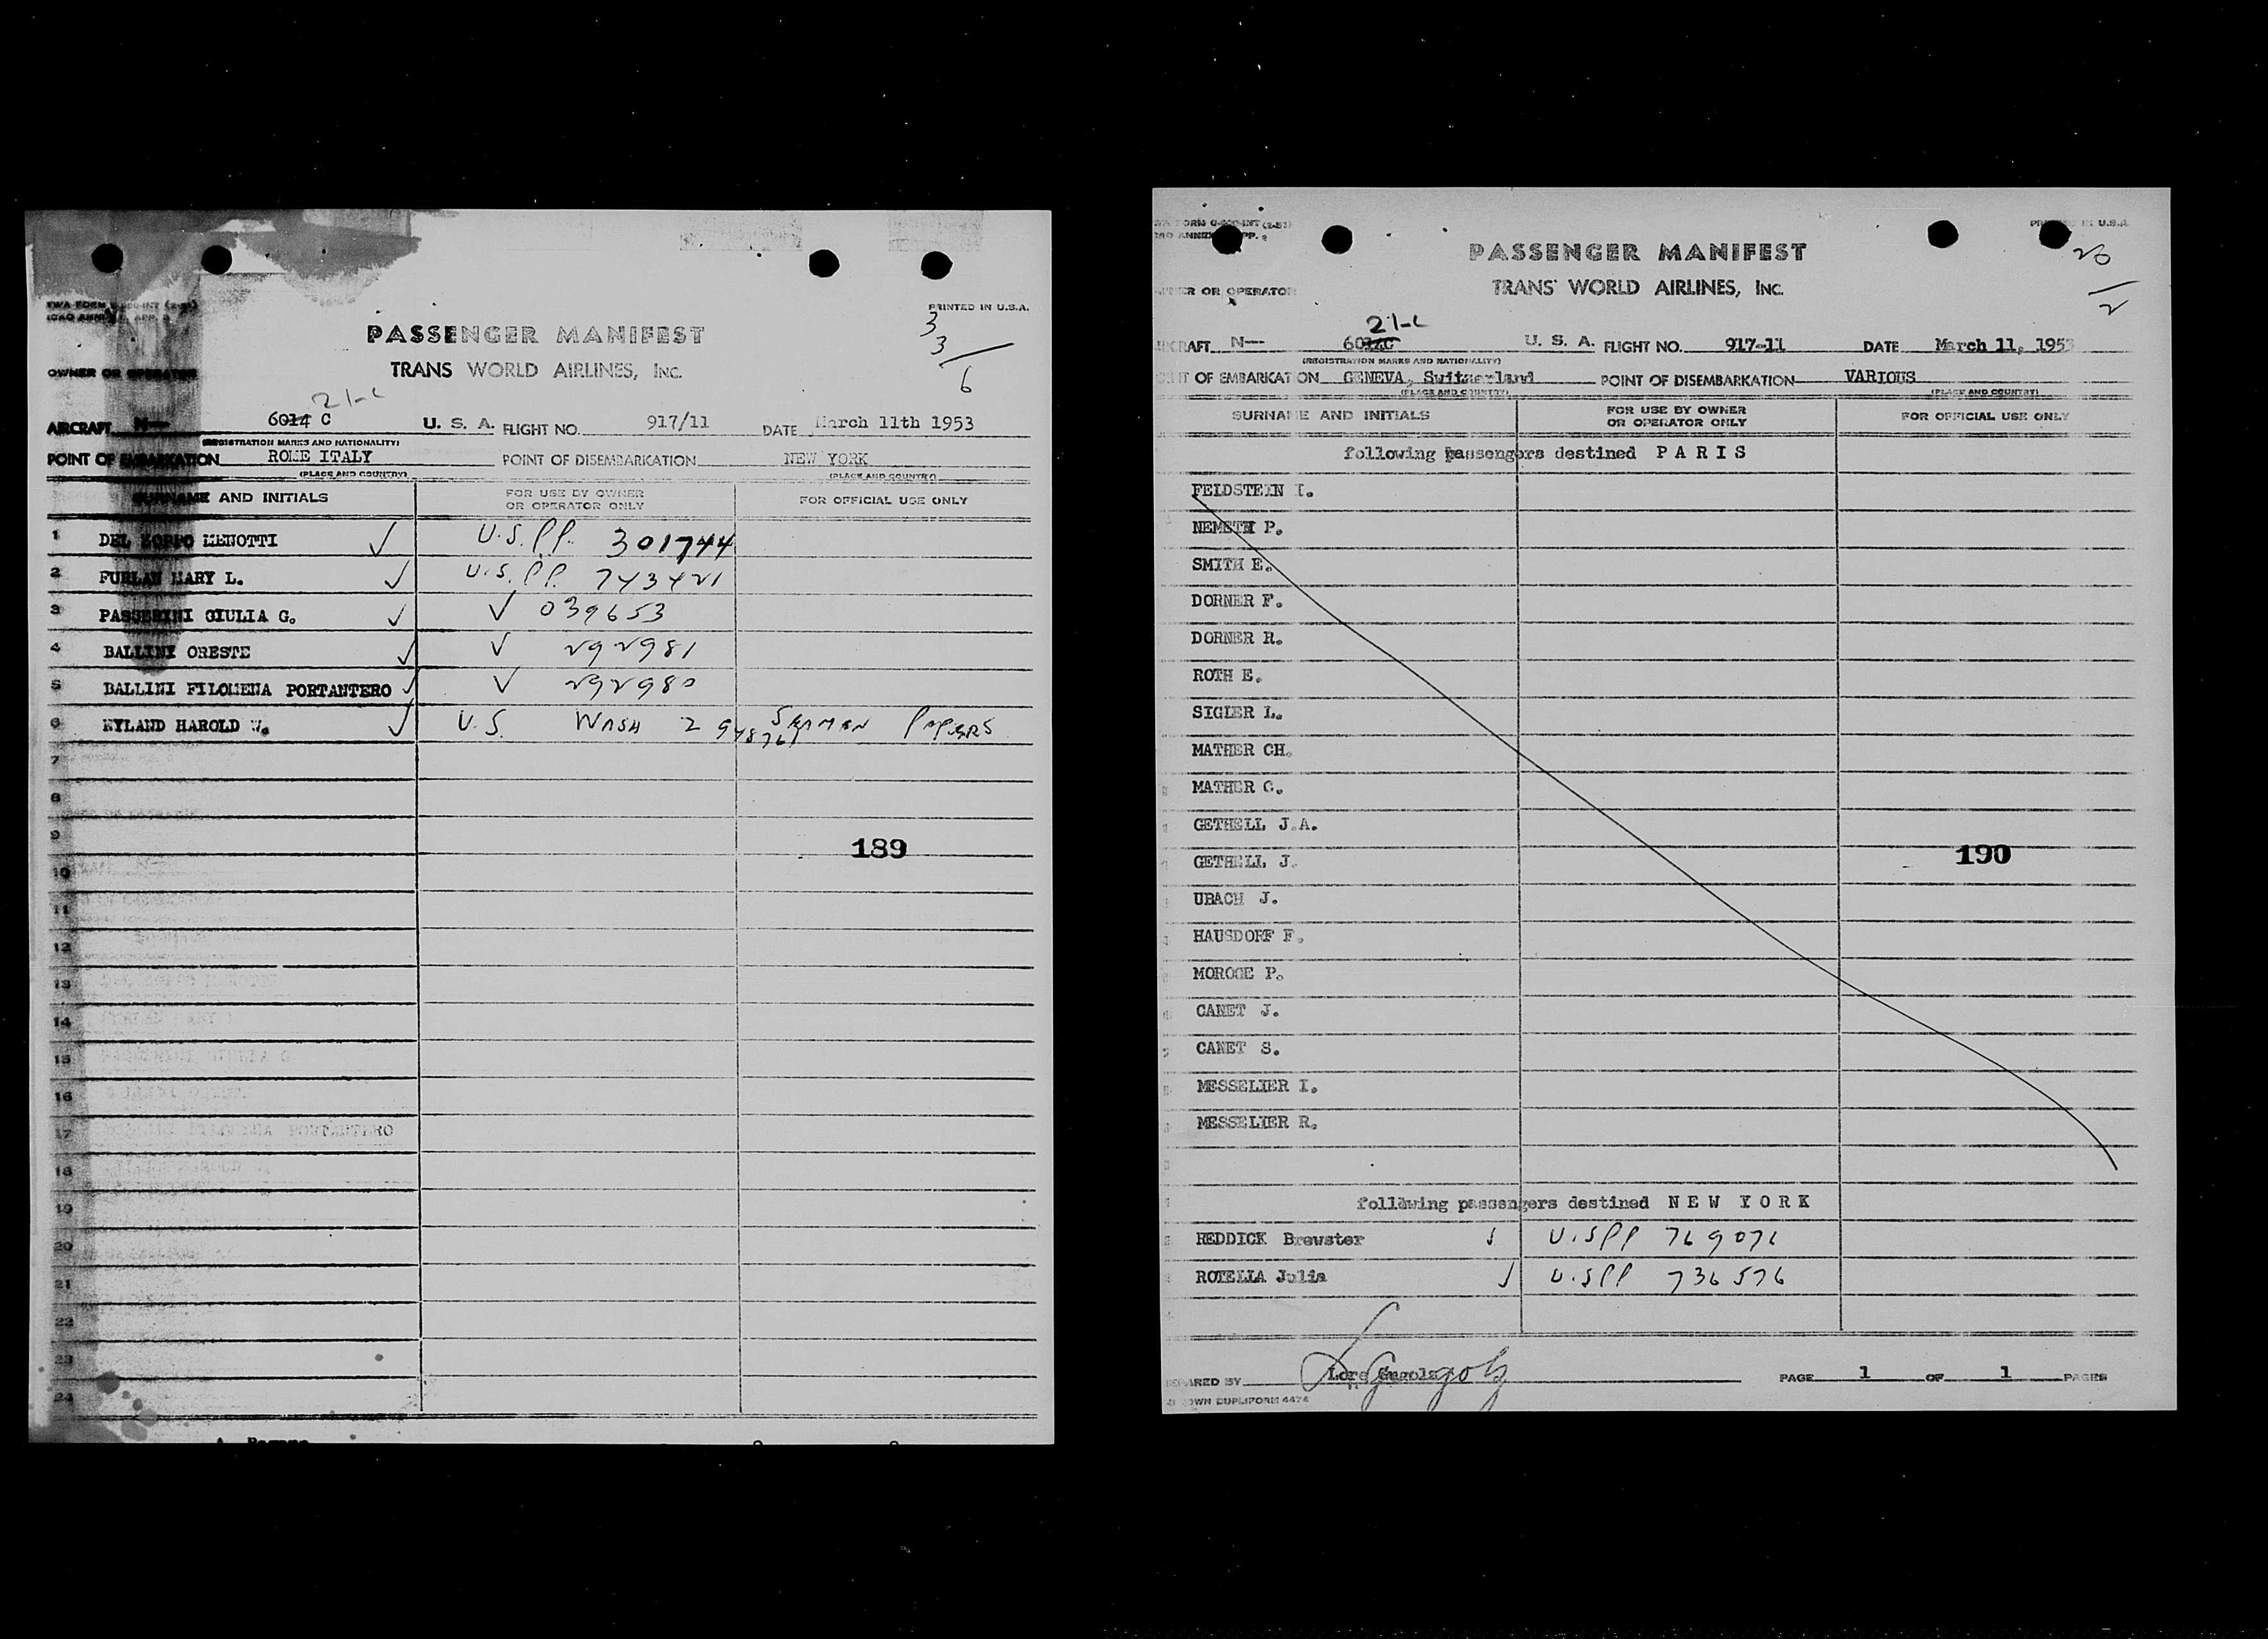 TWA FORM (2-51)
PRINTED IN U.S.A.
ICAO ANNEX APP. 2
3
3
6
PASSENGER MANIFEST
TRANS WORLD AIRLINES, INC.
OWNER OR OPERATOR
21-C
AIRCRAFT N— 6014 C U. S. A. FLIGHT NO. 917/11 DATE March 11th 1953
(REGISTRATION MARKS AND NATIONALITY)
POINT OF EMBARKATION ROME ITALY POINT OF DISEMBARKATION NEW YORK
(PLACE AND COUNTRY) (PLACE AND COUNTRY)
SURNAME AND INITIALS FOR USE BY OWNER OR OPERATOR ONLY FOR OFFICIAL USE ONLY
1 DEL ZOPPO MENOTTI ✓ U.S.PP. 301744
2 FURLAN MARY L. ✓ U.S.PP. 743421
3 PASSERINI GIULIA G. ✓ ✓ 039653
4 BALLINI ORESTE ✓ ✓ 292981
5 BALLINI FILOMENA PORTANTERO ✓ ✓ 292980
6 NYLAND HAROLD W. ✓ U.S. WASH 2 SEAMAN PAPERS
7
8
9
189
10
11
12
13
14
15
16
17
18
19
20
21
22
23
24
(2-51)
PRINTED IN U.S.A.
PASSENGER MANIFEST
TRANS WORLD AIRLINES, INC.
OWNER OR OPERATOR
21-C
AIRCRAFT N— 6014C U. S. A. FLIGHT NO. 917-11 DATE March 11, 1953
(REGISTRATION MARKS AND NATIONALITY)
POINT OF EMBARKATION GENEVA, Switzerland POINT OF DISEMBARKATION VARIOUS
(PLACE AND COUNTRY) (PLACE AND COUNTRY)
SURNAME AND INITIALS FOR USE BY OWNER OR OPERATOR ONLY FOR OFFICIAL USE ONLY
following passengers destined P A R I S
FELDSTEIN I.
NEMETH P.
SMITH E.
DORNER F.
DORNER R.
ROTH E.
SIGLER L.
MATHER CH.
MATHER C.
GETHELL J.A.
GETHELL J.
190
UBACH J.
HAUSDORF F.
MOROGE P.
CANET J.
CANET S.
MESSELIER I.
MESSELIER R.
following passengers destined N E W Y O R K
REDDICK Brewster ✓ U.SPP 769071
ROTELLA Julia ✓ U.SPP 736576
PREPARED BY Lore PAGE 1 OF 1 PAGES
DUPLIFORM 4474